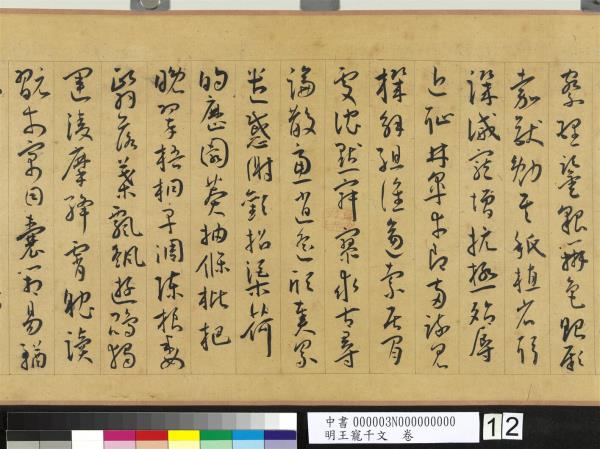 察理鑒貌辨色貽厥
嘉猷勉其祗植省躬
譏誡寵增抗極殆辱
近恥林皋幸即兩疏見
機解組誰逼索居閒
處沈默寂寥求古尋
論散慮逍遙欣奏累
遣慼謝歡招渠荷
的歷園莽抽條枇杷
晚翠梧桐早凋陳根委
翳落葉飄颻遊鵾獨
運凌摩絳霄耽讀
翫市寓目囊箱易輶
中書 000003N000000000
明王寵千文 卷
12